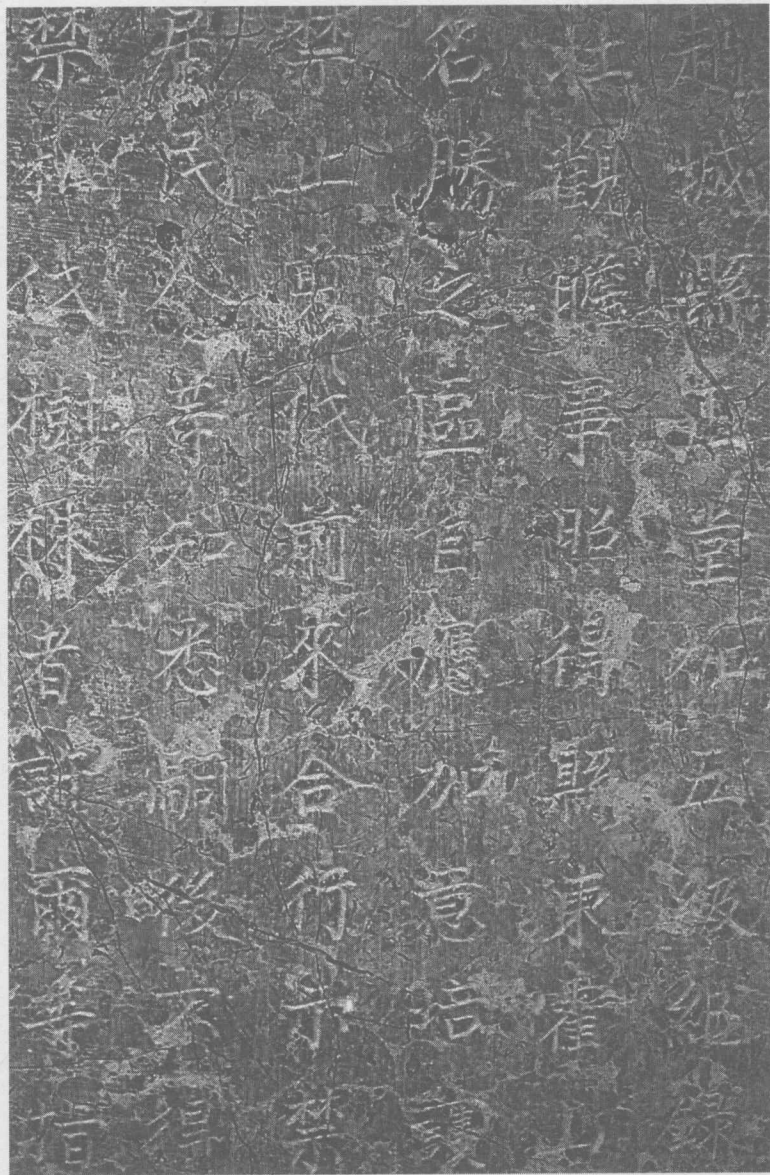 趙城縣正堂加五級紀錄
壯觀瞻事照得縣東霍山
名勝之區自應加意培護
禁止伐前來合行禁
居民人等知悉嗣後不得
禁私伐樹株者許爾等指